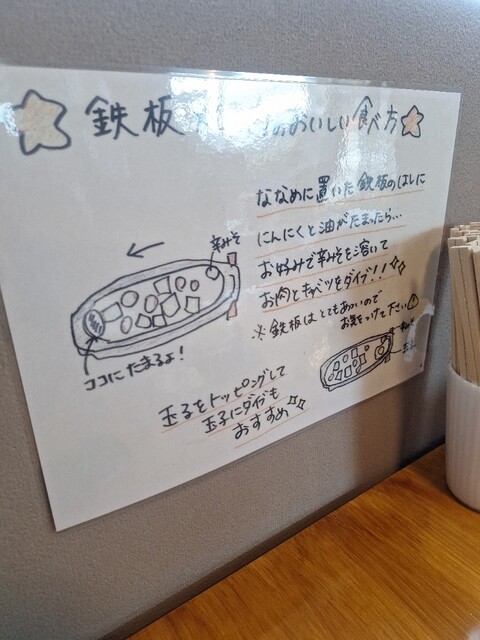 鉄板 のおいしい食べ方
ななめに置いた鉄板のはしに
にんにくと油がたまったら…
お好みで辛みそを溶いて
お肉とキャベツをダイブ!!
※鉄板はとてもあついので
お気をつけて下さい
辛みそ
ココにたまるよ!
玉子をトッピングして
玉子にダイブも
おすすめ